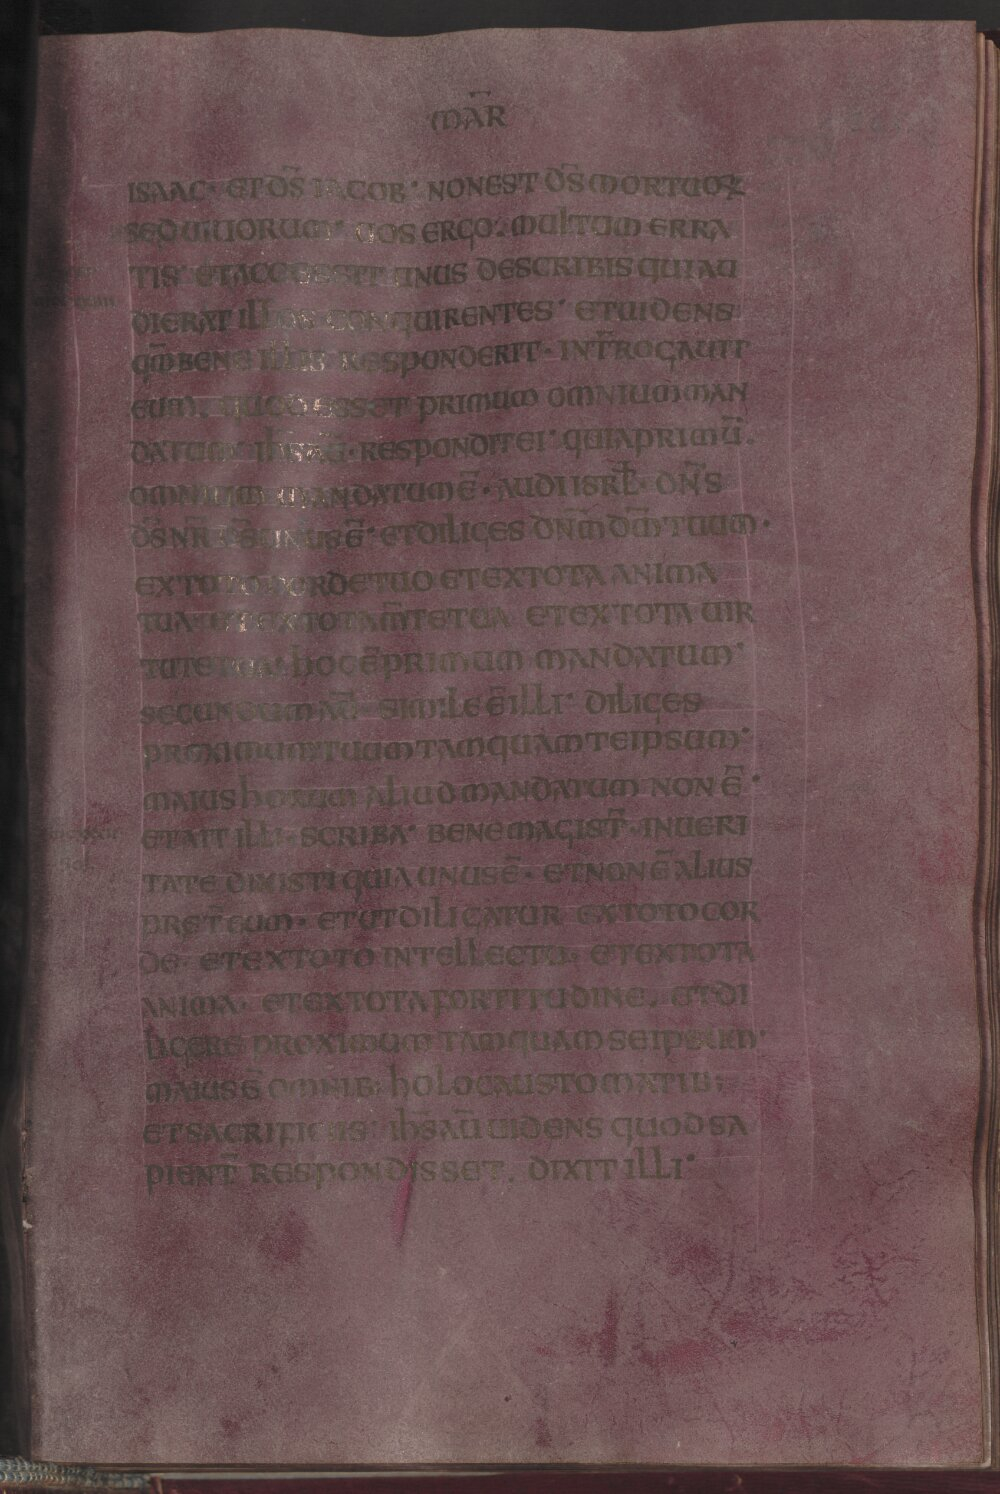 MAR̅
ISAAC· ET D̅S IACOB· NON EST D̅S MORTUOR
SED UIUORUM· UOS ERGO· MULTUM ERRA
TIS· ET ACCESSIT UNUS DE SCRIBIS QUI AU
DIERAT ILLOS CONQUIRENTES· ET UIDENS
QM̅ BENE ILLIS RESPONDERIT· INT̅ROGAUIT
EUM· QUOD ESSET PRIMUM OMNIUM MAN
DATUM· IH̅S AU̅· RESPONDIT EI· QUIA PRIMU̅·
OMNIUM MANDATUM E̅· AUDI ISRL̅· DN̅S
D̅S NR̅ D̅S UNUS E̅· ET DILIGES DN̅M DM̅ TUUM·
EX TOTO CORDE TUO ET EX TOTA ANIMA
TUA· ET EX TOTA M̅TE TUA ET EX TOTA UIR
TUTE TUA· HOC E̅ PRIMUM MANDATUM·
SECUNDUM AU̅· SIMILE E̅ ILLI· DILIGES
PROXIMUM TUUM TAMQUAM TEIPSUM·
MAIUS HORUM ALIUD MANDATUM NON E̅·
ET AIT ILLI· SCRIBA· BENE MAGIST̅· IN UERI
TATE DIXISTI QUIA UNUS E̅· ET NON E̅ ALIUS
PRET̅ EUM· ET UT DILIGATUR EX TOTO COR
DE· ET EX TOTO INTELLECTU· ET EX TOTA
ANIMA· ET EX TOTA FORTITUDINE· ET DI
LIGERE PROXIMUM TAMQUAM SEIPSUM·
MAIUS E̅ OMNIB· HOLOCAUSTOMATIB·
ET SACRIFICIIS· IH̅S AU̅ UIDENS QUOD SA
PIENT̅ RESPONDISSET· DIXIT ILLI·